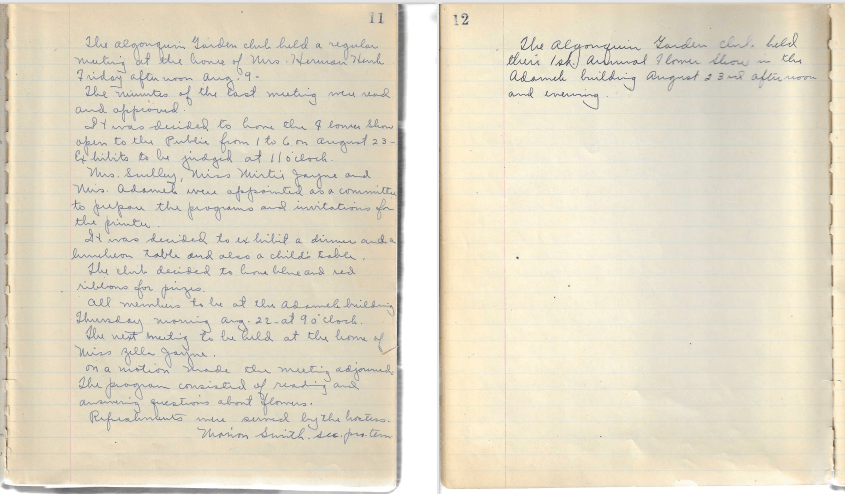 11
The Algonquin Garden club held a regular
meeting at the home of Mrs. Herman
Friday afternoon Aug. 9-
The minutes of the last meeting were read
and approved.
It was decided to have the Flower Show
open to the Public from 1 to 6 on August 23-
Exhibits to be judged at 11 o'clock.
Mrs. Miss Mirtie Jayne and
Mrs. Adamek were appointed as a committee
to prepare the programs and invitations for
the printer.
It was decided to exhibit a dinner and a
luncheon table and also a child's table.
The club decided to have blue and red
ribbons for prizes.
All members to be at the Adamek building
Thursday morning Aug. 22-at 9 o'clock.
The next meeting to be held at the home of
Miss Zella Jayne.
on a motion made the meeting adjourned
The program consisted of reading and
answering questions about flowers.
Refreshments were served by the hostess.
Marion Smith, sec. pro. tem
12
The Algonquin Garden club held
their 1st Annual Flower Show in the
Adamek building August 23rd afternoon
and evening.